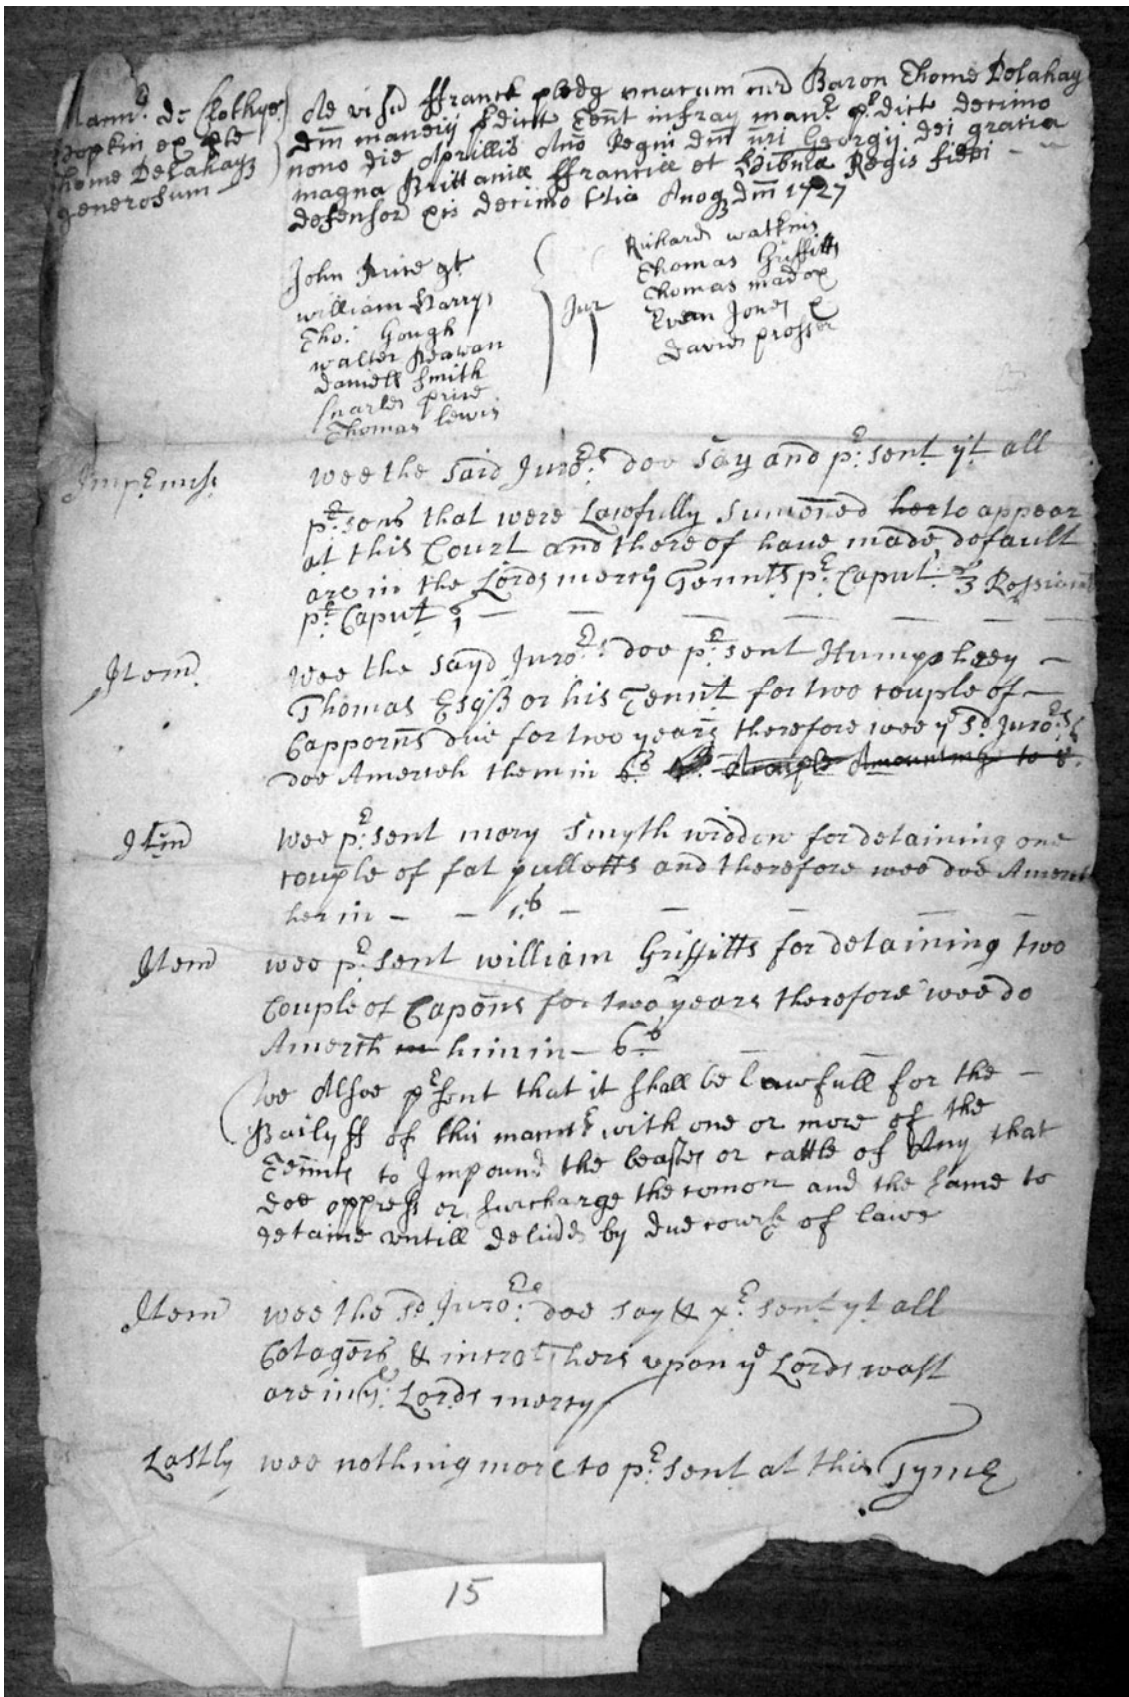 Mann^r. de Clothyes
Hopkin ex pte
Thome Delahay
generosum
de visu ffranck pledg unacum cur Baron Thome Delahay
Dm̄ manerij p^rdict Tent infray man^r. p^rdict decimo
nono die Aprillis Ano Regni Dm̄ nr̄i Georgij dei gratia
magna Brittaniæ ffranciæ et Hibniæ Regis fidei - -
defensor &is decimo t̄tio Anoq Dm̄ 1727
John Price gt
William Parrys
Tho: Gough
Walter
Daniell Smith
Charles price
Thomas lewis
Jur
Richard watkins
Thomas Griffitts
Thomas madox
Evan Jones
David prosser
Imp^rmis
Wee the said Juro^rs doe say and p^rsent y^t all
p^rsons that were Lawfully sumoned her to appear
at this Court and thereof have made default
are in the Lords mercy Tennts p^r Caput 3 Ressiants
p^r Caput
Item
Wee the sayd Juro^rs doe p^rsent Humphrey -
Thomas Esq^r or his Tennt for two couple of -
Capporns due for two years therefore wee y^e s^d Juro^rs
doe Amerceh them in 6^s Amounting to 8
Itm
Wee p^rsent mary Smyth widdow for detaining one
couple of fat pulletts and therefore wee doe Amerch
her in - - 1^s - - - - -
Item
wee p^rsent william Griffitts for detaining two
Couple of Capōns for two years therefore wee do
Amerch in him in - 6^s
We Alsoe p^rsent that it shall be Lawfull for the -
Bailyff of this mann^r with one or more of the
Tennts to Impound the beastes or cattle of Any that
doe oppress or surcharge the comon and the same to
detaine untill delivd by due course of lawe
Item
wee the s^d Juro^rs doe say & p^rsent y^t all
Cotagers & incrochers upon y^e Lords wast
are in y^e Lords mercy
Lastly
wee nothing more to p^rsent at this Tyme
15